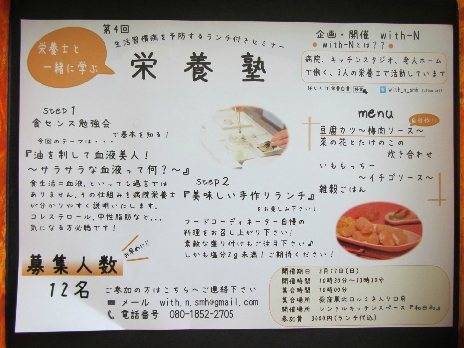 栄養士と
一緒に学ぶ
第4回
生活習慣病を予防するランチ付きセミナー
栄養塾
企画・開催 with-N
●with-Nとは??●
病院、キッチンスタジオ、老人ホーム
で働く、3人の栄養士で活動しています
with_n_smh
step1
食センス勉強会
で基本を知る!
今回のテーマは・・・
『油を制して血液美人!
～サラサラな血液って何?～』
食生活=血液、といっても過言では
ありません。その仕組みを病院栄養士
が分かりやすく説明いたします。
コレステロール、中性脂肪など...
気になる方必聴です!
step2
『美味しい手作りランチ』
をお楽しみ下さい!
フードコーディネーター自慢の
料理をお召し上がり下さい!
素敵な盛り付けもご注目下さい♪
しかも塩分2g未満!ご期待ください!
menu
豆腐カツ～梅肉ソース～
菜の花とたけのこの
炊き合わせ
いももっちー
～イチゴソース～
雑穀ごはん
お早めに!!
募集人数
12名
ご参加の方はこちらへご連絡下さい
メール with.n.smh@gmail.com
電話番号 080-1852-2705
開催期日
開催時間 10時30分～13時30分
集合時間 10時00分
集合場所
開催場所 レンタルキッチンスペース
参加費 3000円(ランチ代込)